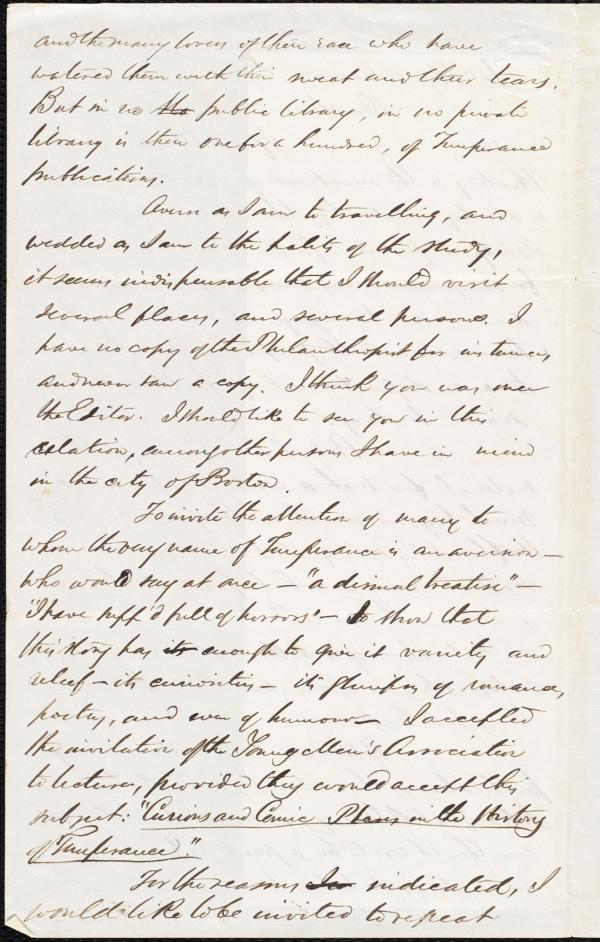 and the many lovers of their race who have
watered them with their sweat and their tears.
But in no the public library, in no private
library is there one for a hundred, of Temperance
publications.
Averse as I am to travelling, and
wedded as I am to the habits of the study,
it seems indispensable that I should visit
several places, and several persons. I
have no copy of the Philanthropist for instance,
and never saw a copy. I think you was once
the Editor. I should like to see you in this
relation, among other persons I have in mind
in the city of Boston.
To invite the attention of many to
whom the very name of Temperance is an aversion —
who would say at once — "a dismal treatise" —
"I have supp'd full of horrors" — to show that
this story has its enough to give it variety and
relief — its curiosities — its glimpses of romance,
poetry, and even of humour — I accepted
the invitation of the Young Men's Association
to lecture, provided they would accept this
subject: "Curious and Comic in the History
of Temperance."
For the reasons indicated, I
would like to be invited to repeat